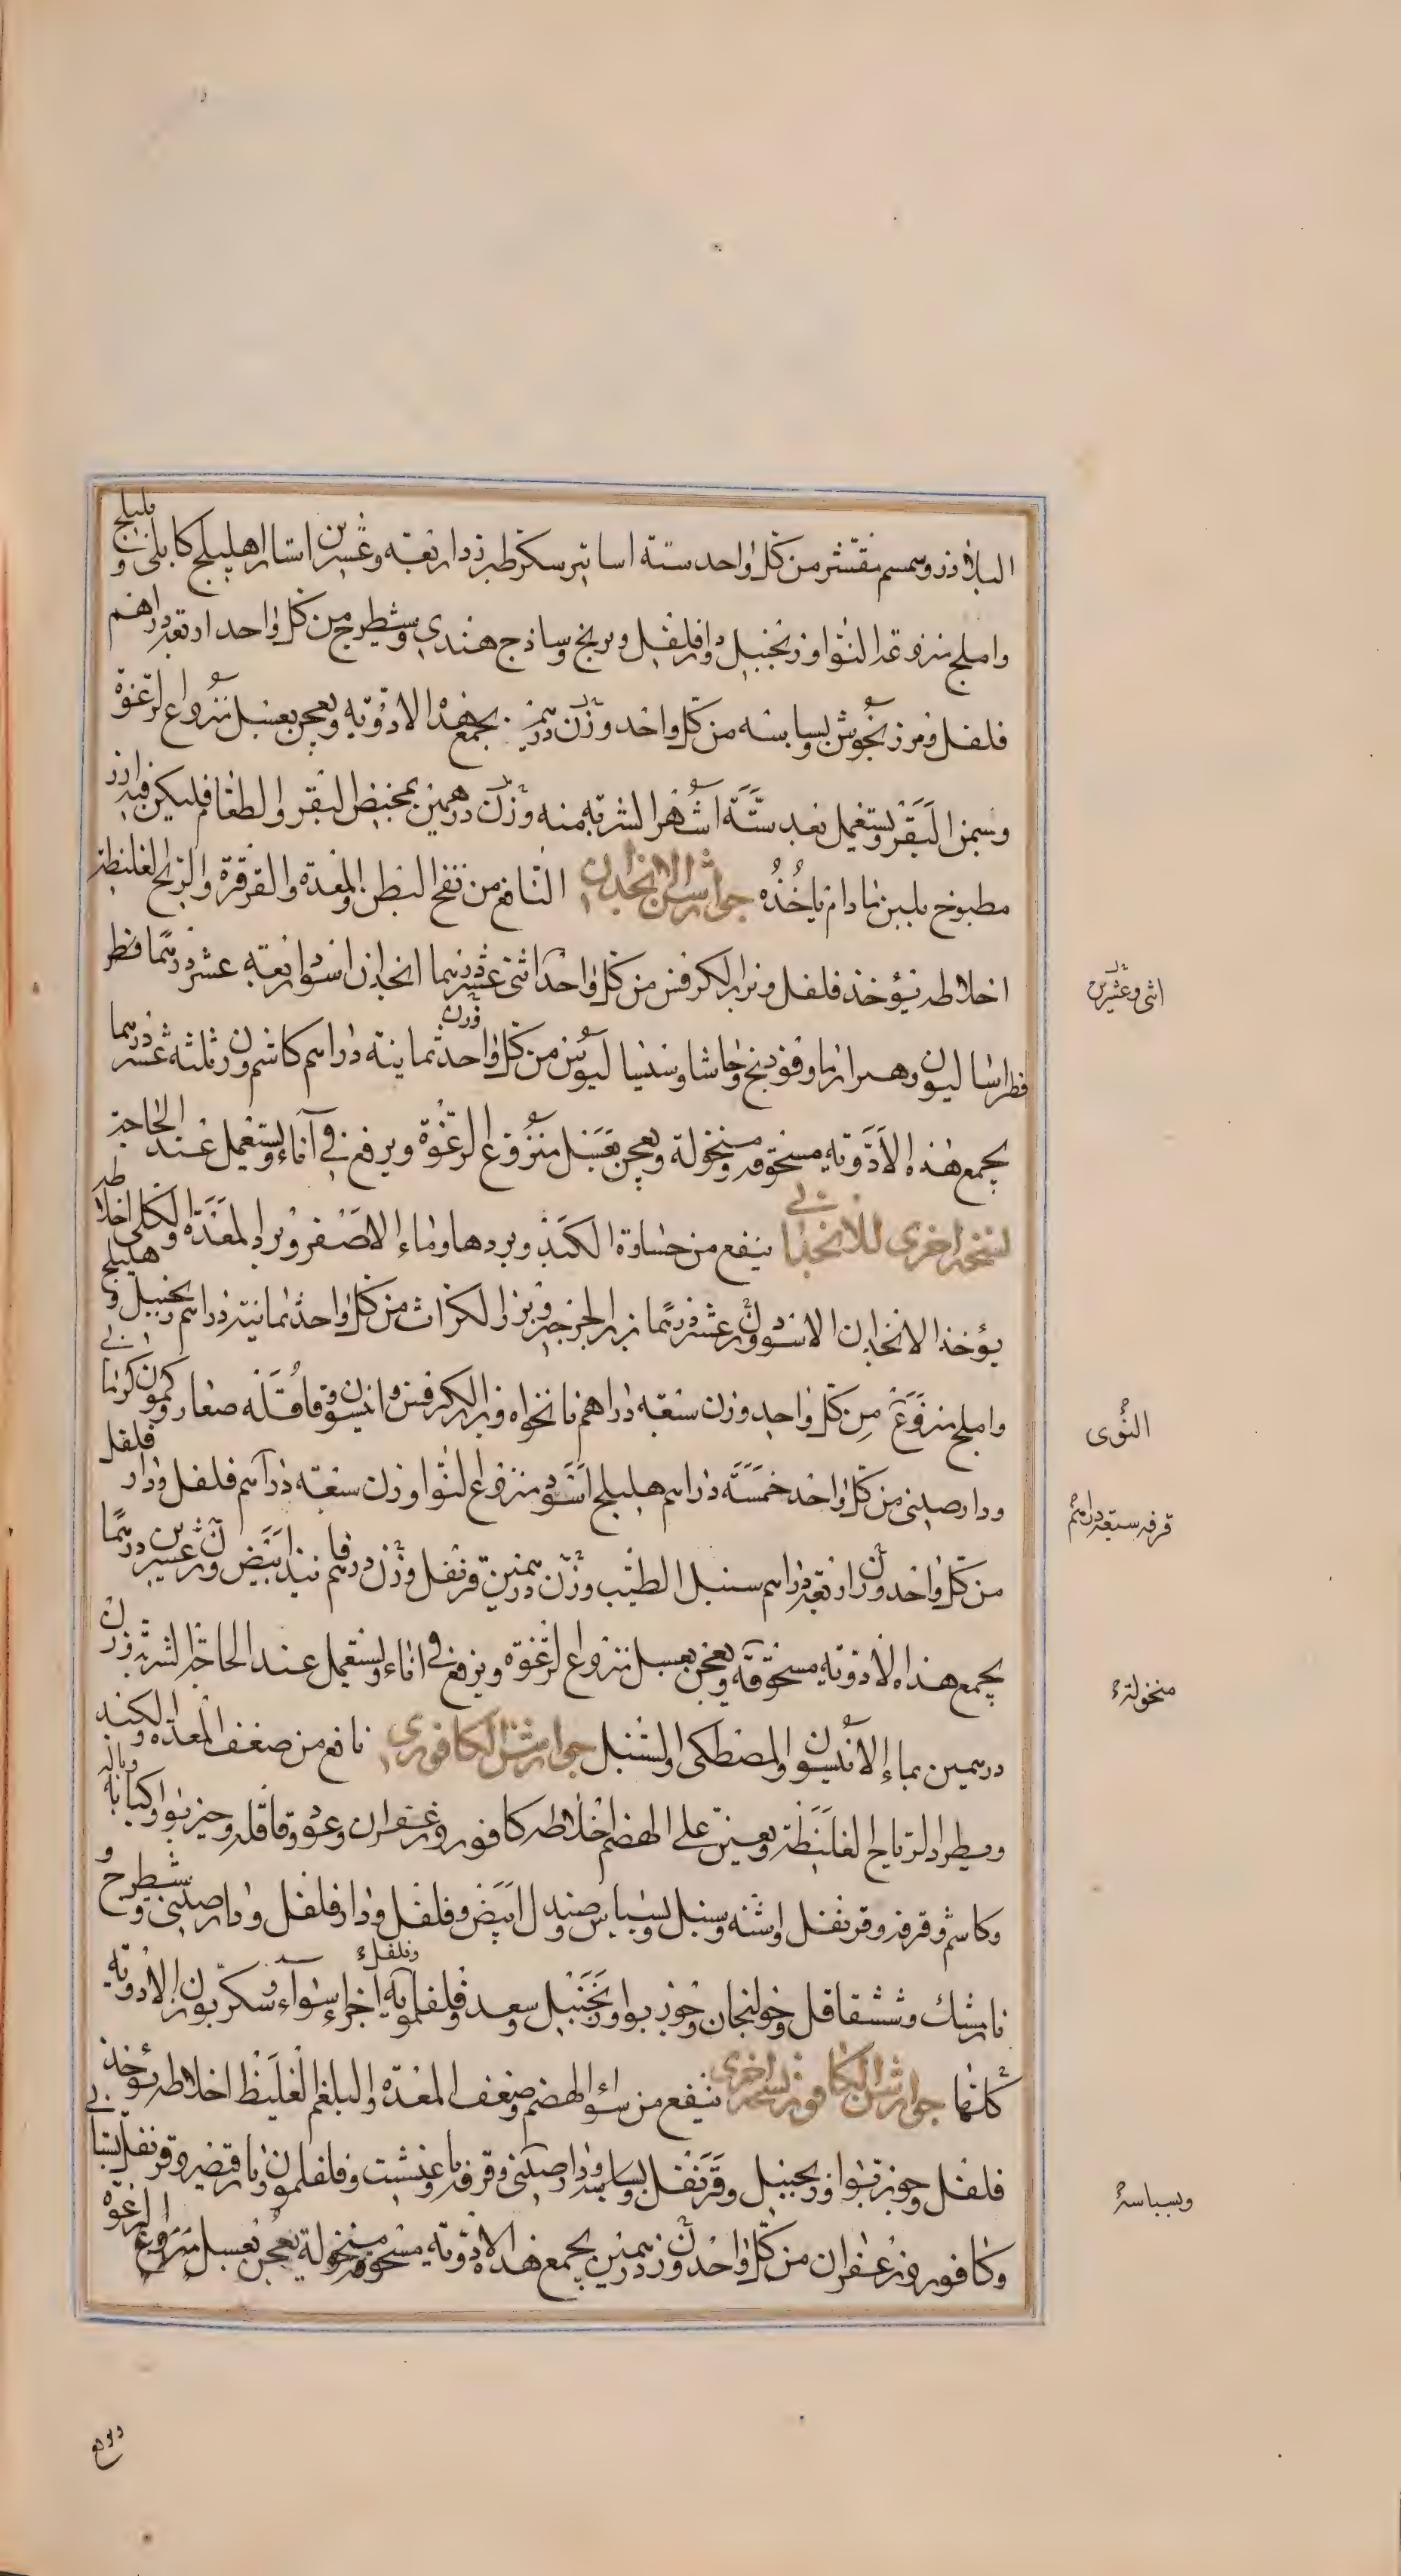 البلاذر وسمسم مقشر من كل واحد ستة اساتير سكر طبرزد اربعة وعشرين استار اهليلج كابلى وبليلج
واملج منزوعة النوا وزنجبيل ودارفلفل وبرنج وساذج هندي وشيطرج من كل واحد اربعة دراهم
فلفل ومرزنجوش وبسباسه من كل واحد وزن درهمين يجمع هذه الادوية ويعجن بعسل منزوع الرغوة
وسمن البقر ويستعمل بعد ستة اشهر الشربة منه وزن درهمين بمخيض البقر والطعام فليكن فيه ارز
مطبوخ بلبن مادام ياخذه جوارشن الانجدان النافع من نفخ البطن والمعدة والقرقرة والريح الغليظة
اخلاطه يؤخذ فلفل وبزر الكرفس من كل واحد اثنى عشر درهما انجدان اسود اربعة عشر درهما فطر
فطراساليون وهزارزما وفودنج وحاشا وسيساليوس من كل واحد وزن ثمانية دراهم كاشم وزن ثلثة عشر درهما
يجمع هذه الادوية مسحوقة ومنخولة ويعجن بعسل منزوع الرغوة ويرفع في آناء ويستعمل عند الحاجة
نسخه اخرى للانجدانى ينفع من جساوة الكبد وبردها وماء الاصفر وبرد المعدة والكلى اخلاطه
يؤخذ الانجدان الاسود وزن عشر درهما بزر الجزر وبزر الكراث من كل واحد ثمانية دراهم زنجبيل وهليلج
واملج منزوع من كل واحد وزن سبعة دراهم نانخواه وبزر الكرفس وانيسون وقاقلة صغار وكمون كرمانى
ودارصينى من كل واحد خمسة دراهم هليلج اسود منزوع النوا وزن سبعة دراهم فلفل ودار فلفل
من كل واحد وزن اربعة دراهم سنبل الطيب وزن درهمين قرنفل وزن درهم فانيد ابيض وزن عشرين درهما
يجمع هذه الادوية مسحوقة ويعجن بعسل منزوع الرغوة ويرفع في اناء ويستعمل عند الحاجة الشربة وزن
درهمين بماء الانيسون والمصطكى والسنبل جوارشن الكافورى نافع من ضعف المعدة والكبد
ويطرد الرياح الغليظة ويعين على الهضم اخلاطه كافور وزعفران وعود وقاقله وجيزبوا وكبابه
وكاشم وقرفه وقرنفل واشنه وسنبل وبسباس وصندل ابيض وفلفل ودارفلفل ودارصينى وشيطرج و
نارمشك وششقاقل وخولنجان وجوز بوا وزنجبيل وسعد وفلفلمويه اجزاء سواء وسكر بوزن الادوية
وفلفل
كلها جوارشن الكافور نسخه اخرى ينفع من سوء الهضم وضعف المعدة والبلغم الغليظ اخلاطه يؤخذ
فلفل وجوزبوا وزنجبيل وقرنفل وبسباسه ودارصينى وقرفه
وكافور وزعفران من كل واحد وزن درهمين يجمع هذه الادوية مسحوقة ومنخولة يعجن بعسل منزوع الرغوة
اثنى وعشرين
النوى
قرفه سبعة دراهم
منخولة
وبسباسة